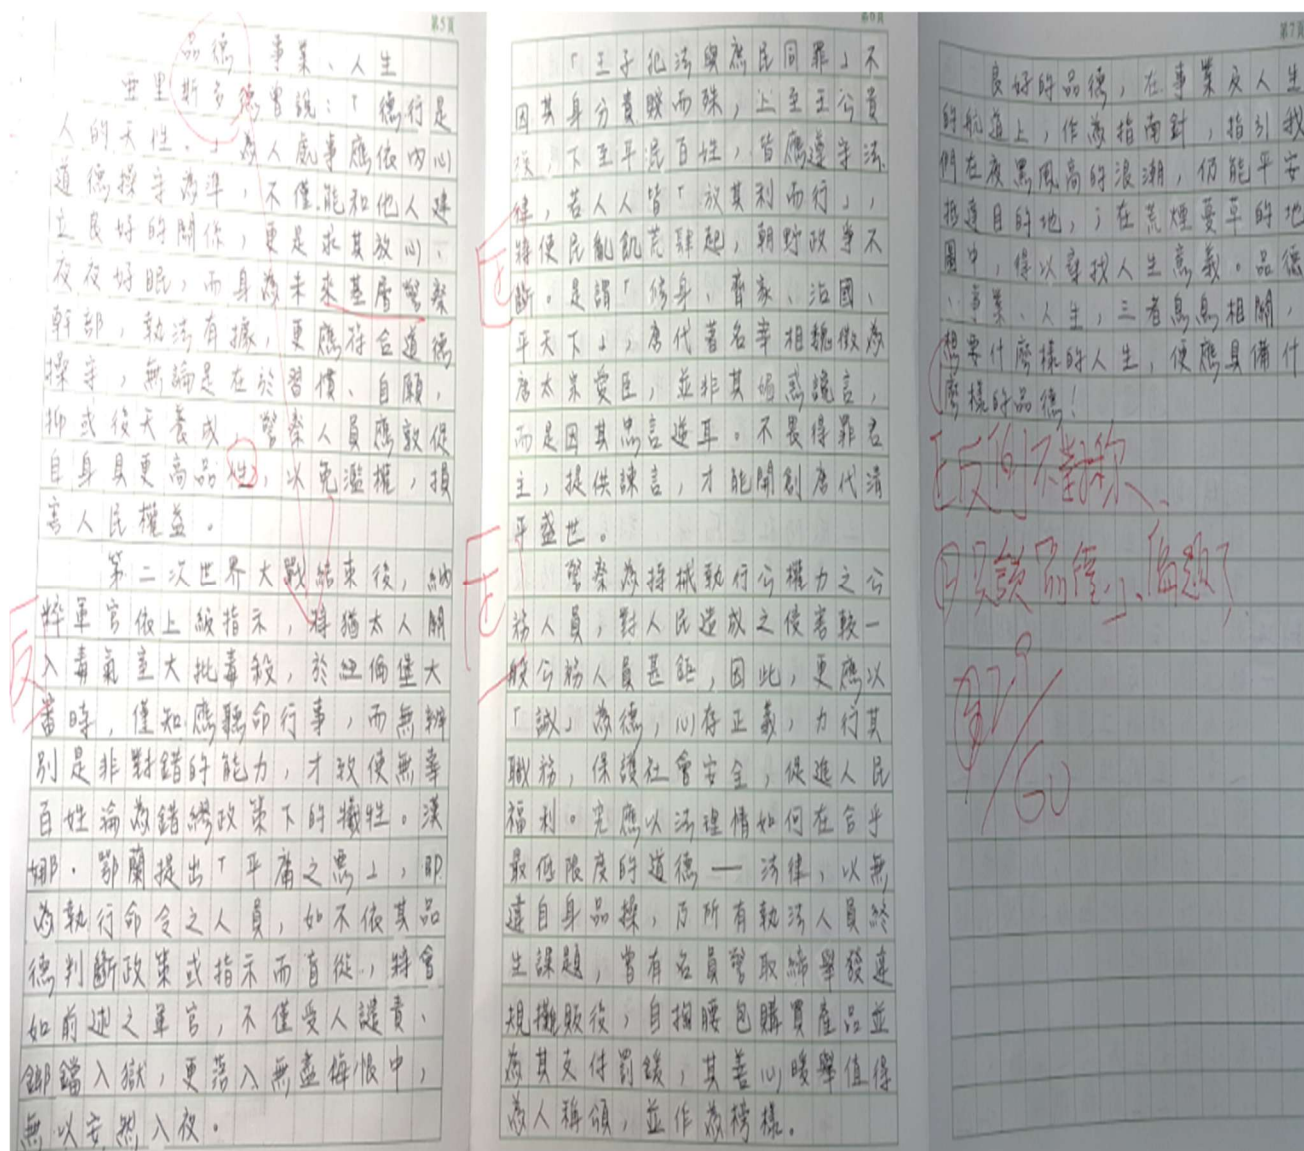 第5頁
品德、事業、人生
亞里斯多德曾說：「德行是
人的天性。」為人處事應依內心
道德操守為準，不僅能和他人建
立良好的關係，更是求其放心、
夜夜好眠，而身為未來基層警察
幹部，執法有據，更應符合道德
操守，無論是在於習慣、自願，
抑或後天養成，警察人員應敦促
自身具更高品性，以免濫權，損
害人民權益。
第二次世界大戰結束後，納
粹軍官依上級指示，將猶太人關
入毒氣室大批毒殺，於紐倫堡大
審時，僅知應聽命行事，而無辨
別是非對錯的能力，才致使無辜
百姓淪為錯繆政策下的犧牲。漢
娜．鄂蘭提出「平庸之惡」，即
為執行命令之人員，如不依其品
德判斷政策或指示而盲從，將會
如前述之軍官，不僅受人譴責、
鋃鐺入獄，更落入無盡悔恨中，
無以安然入夜。
反
第6頁
「王子犯法與庶民同罪」不
因其身分貴賤而殊，上至王公貴
族，下至平民百姓，皆應遵守法
律，若人人皆「放其利而行」，
將使民亂飢荒肆起，朝野政爭不
斷。是謂「修身、齊家、治國、
平天下」，唐代著名宰相魏徵為
唐太宗愛臣，並非其媚惑讒言，
而是因其忠言逆耳。不畏得罪君
主，提供諫言，才能開創唐代清
平盛世。
警察為持械執行公權力之公
務人員，對人民造成之侵害較一
般公務人員甚鉅，因此，更應以
「誠」為德，心存正義，力行其
職務，保護社會安全，促進人民
福利。究應以法理情如何在合乎
最低限度的道德——法律，以無
違自身品操，乃所有執法人員終
生課題，曾有名員警取締舉發違
規攤販後，自掏腰包購買產品並
為其支付罰鍰，其善心暖舉值得
為人稱頌，並作為榜樣。
正
正
第7頁
良好的品德，在事業及人生
的航道上，作為指南針，指引我
們在夜黑風高的浪潮，仍能平安
抵達目的地，；在荒煙蔓草的地
圖中，得以尋找人生意義。品德
、事業、人生，三者息息相關，
想要什麼樣的人生，便應具備什
麼樣的品德！
正反例不對稱、
只談品德，偏題了
/60